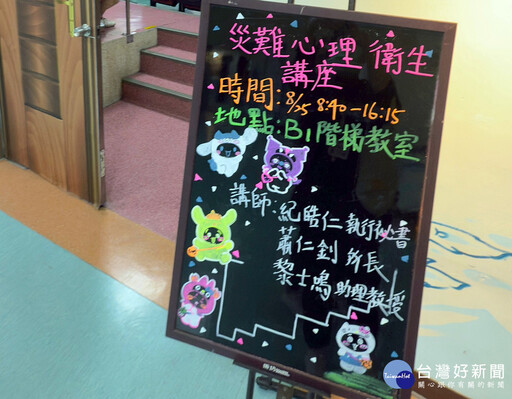 災難心理衛生
講座
時間:8/25 8:40-16:15
地點:B1階梯教室
講師:紀皓仁執行秘書
蕭仁釗所長
黎士鳴助理教授
台灣好新聞
TaiwanHot
關心跟你有關的新聞